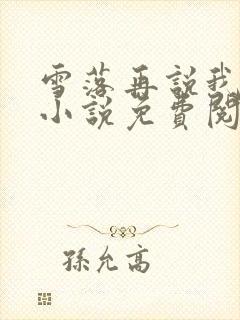 雪落再説我
小説免費閱
孫允高